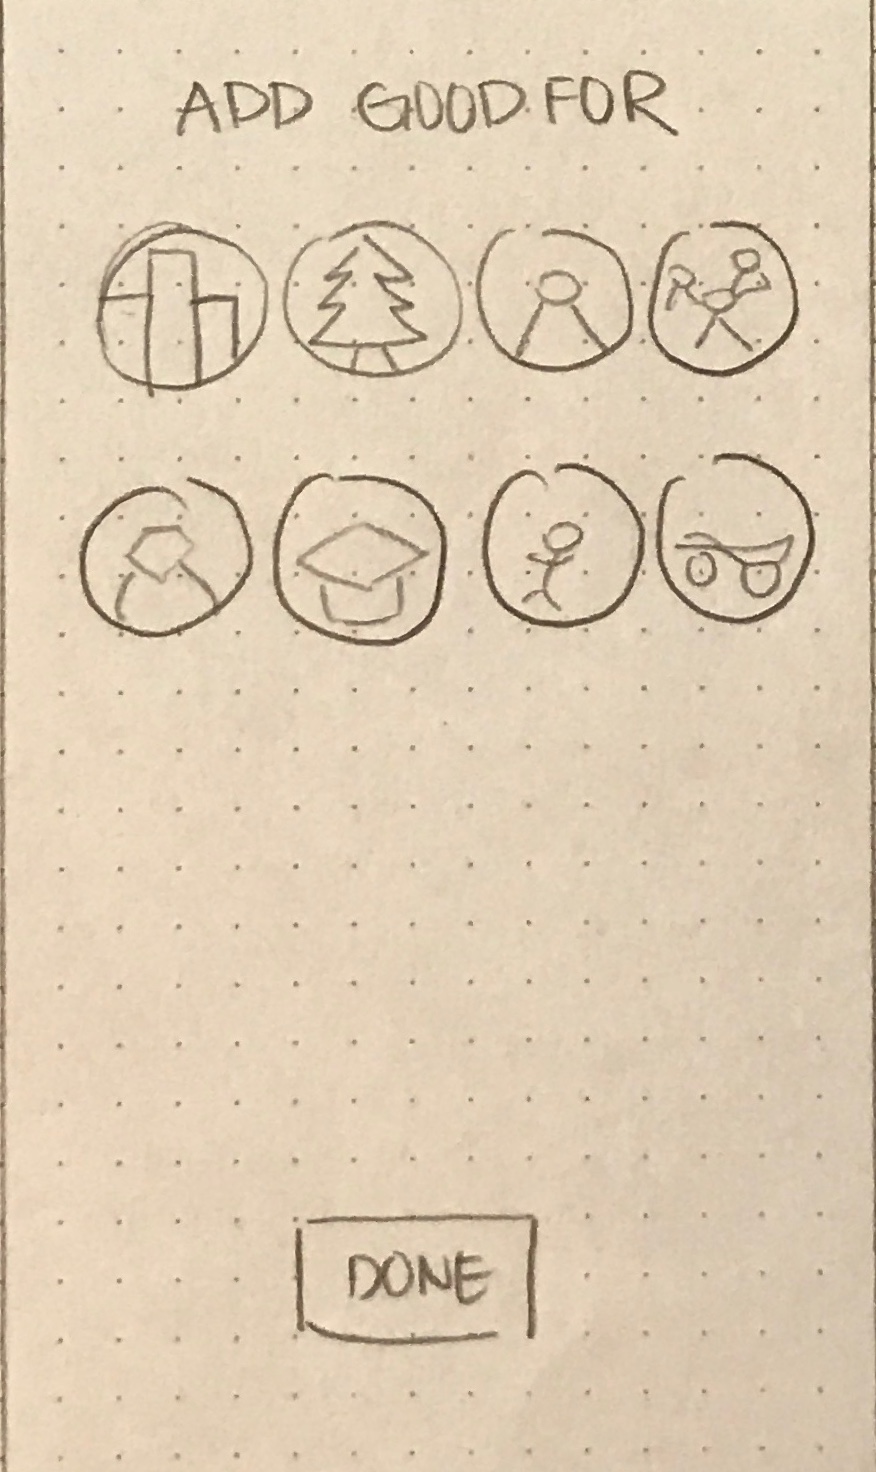 ADD GOOD FOR
DONE